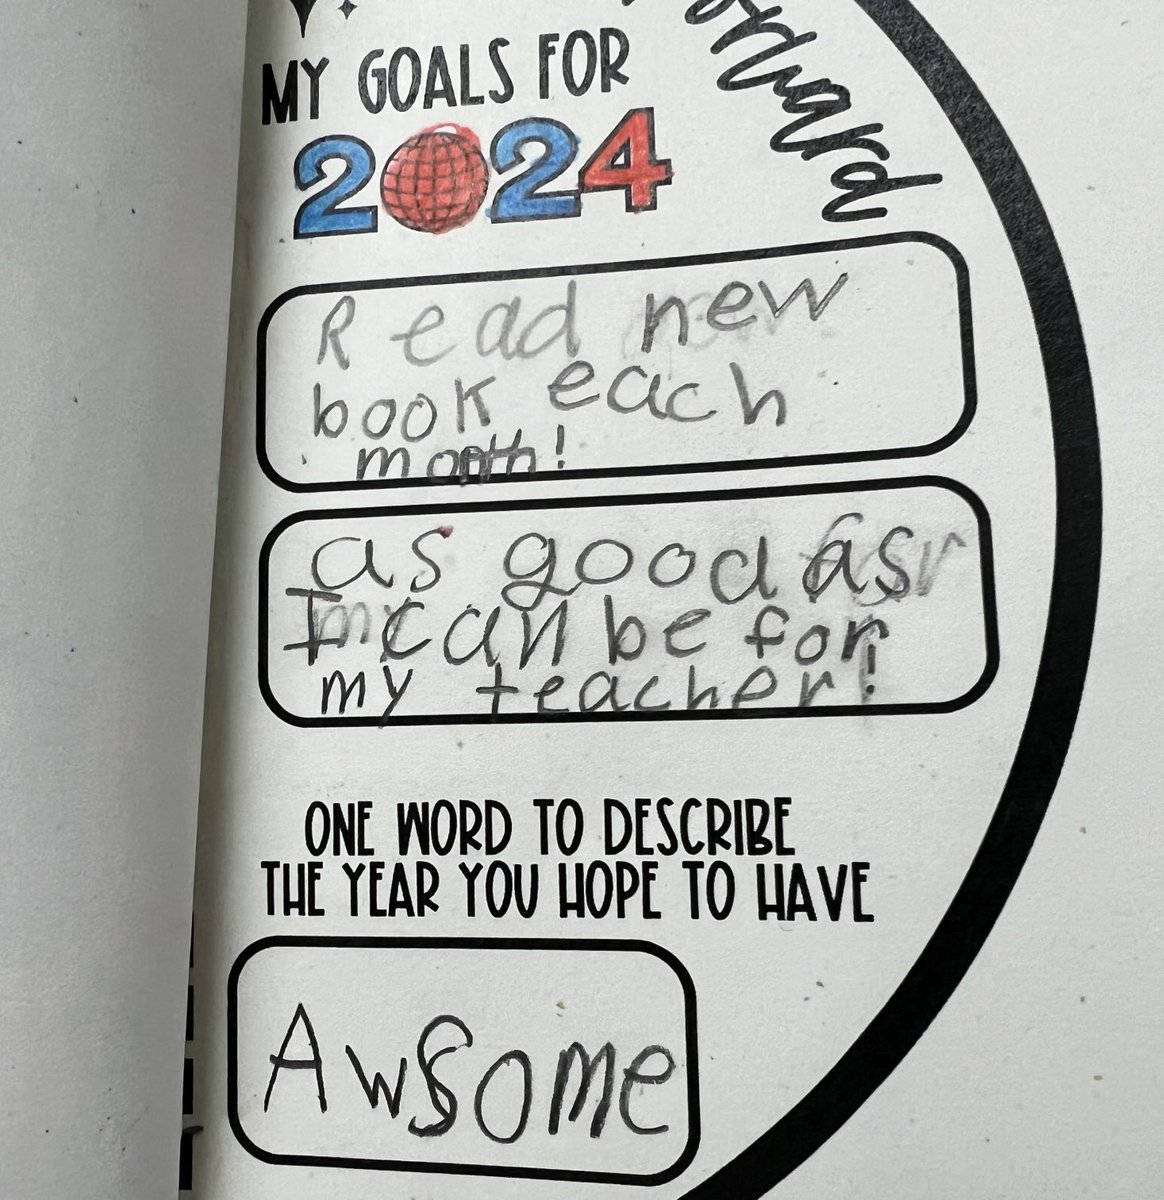 MY GOALS FOR
2024
Read new
book each
month!
as good as
I can be for
my teacher!
ONE WORD TO DESCRIBE
THE YEAR YOU HOPE TO HAVE
Awsome